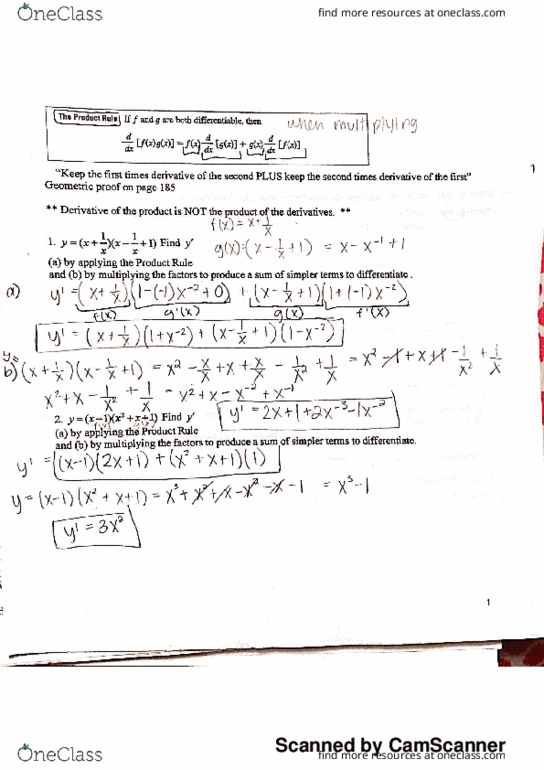 OneClass
find more resources at oneclass.com
The Product Rule If f and g are both differentiable, then
when multiplying
d/dx [f(x)g(x)] = f(x) d/dx [g(x)] + g(x) d/dx [f(x)]
1
"Keep the first times derivative of the second PLUS keep the second times derivative of the first"
Geometric proof on page 185
** Derivative of the product is NOT the product of the derivatives. **
f(x) = x + 1/x
1. y = (x + 1/x)(x − 1/x + 1) Find y'
g(x) = (x − 1/x + 1) = x − x⁻¹ + 1
(a) by applying the Product Rule
and (b) by multiplying the factors to produce a sum of simpler terms to differentiate.
a) y' = (x + 1/x)(1 − (−1)x⁻² + 0) + (x − 1/x + 1)(1 + (−1)x⁻²)
f(x) g'(x) g(x) f'(x)
y' = (x + 1/x)(1 + x⁻²) + (x − 1/x + 1)(1 − x⁻²)
b) (x + 1/x)(x − 1/x + 1) = x² − x/x + x + x/x − 1/x² + 1/x = x² − 1 + x + 1 − 1/x² + 1/x
x² + x − 1/x² + 1/x = x² + x − x⁻² + x⁻¹
y' = 2x + 1 + 2x⁻³ − 1x⁻²
2. y = (x−1)(x² + x + 1) Find y'
(a) by applying the Product Rule
and (b) by multiplying the factors to produce a sum of simpler terms to differentiate.
y' = (x−1)(2x + 1) + (x² + x + 1)(1)
y = (x−1)(x² + x + 1) = x³ + x² + x − x² − x − 1 = x³ − 1
y' = 3x²
1
Scanned by CamScanner
OneClass
find more resources at oneclass.com